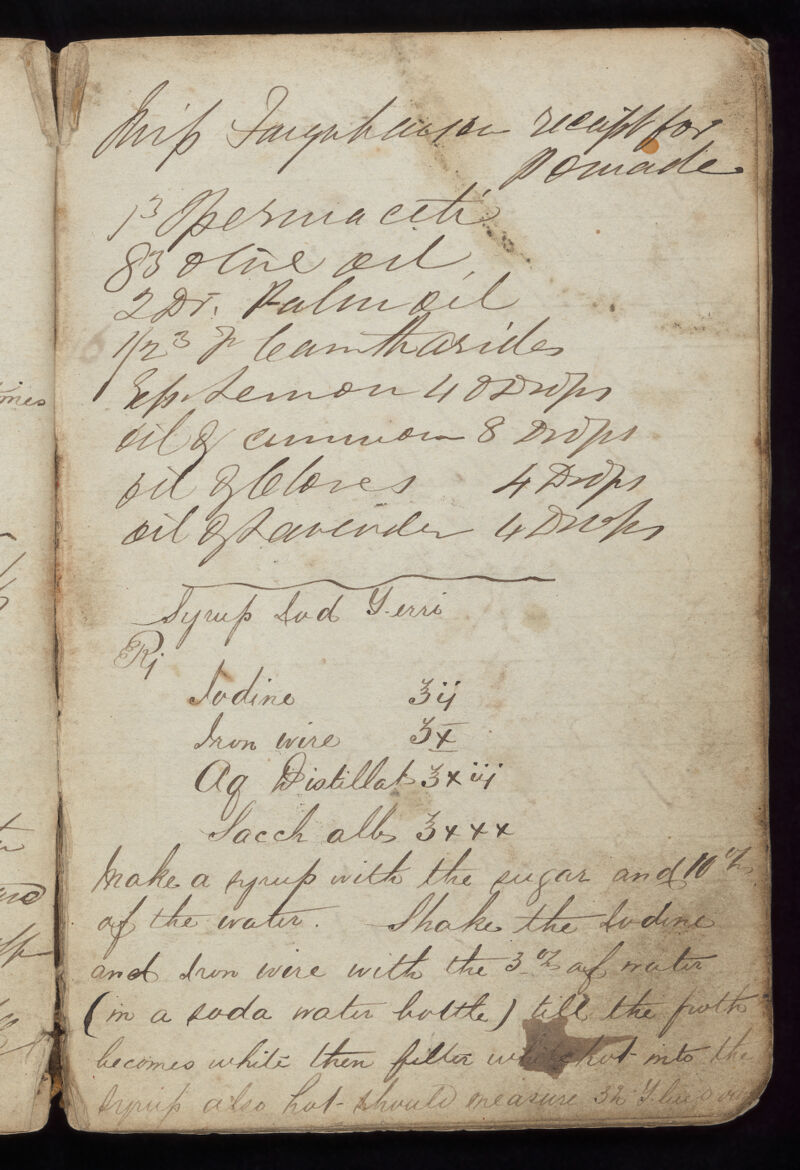 Miss receipt for
Pomade
1 ℥ Spermaceti
8 ℥ olive oil
2 Dr. Palm oil
1/2 ℥ Cantharides
Ess Lemon 40 Drops
oil of 8 Drops
oil of Cloves 4 Drops
oil of Lavender 4 Drops
Syrup Iod Ferri
Rj
Iodine ℥ij
Iron wire ℥x
Aq Distillat ℥xiij
Sacch alb ℥xxx
Make a syrup with the sugar and 10 oz
of the water. Shake the Iodine
and Iron wire with the 3 oz of water
(in a soda water bottle) till the froth
becomes white then filter while hot into the
syrup also hot should measure
mes